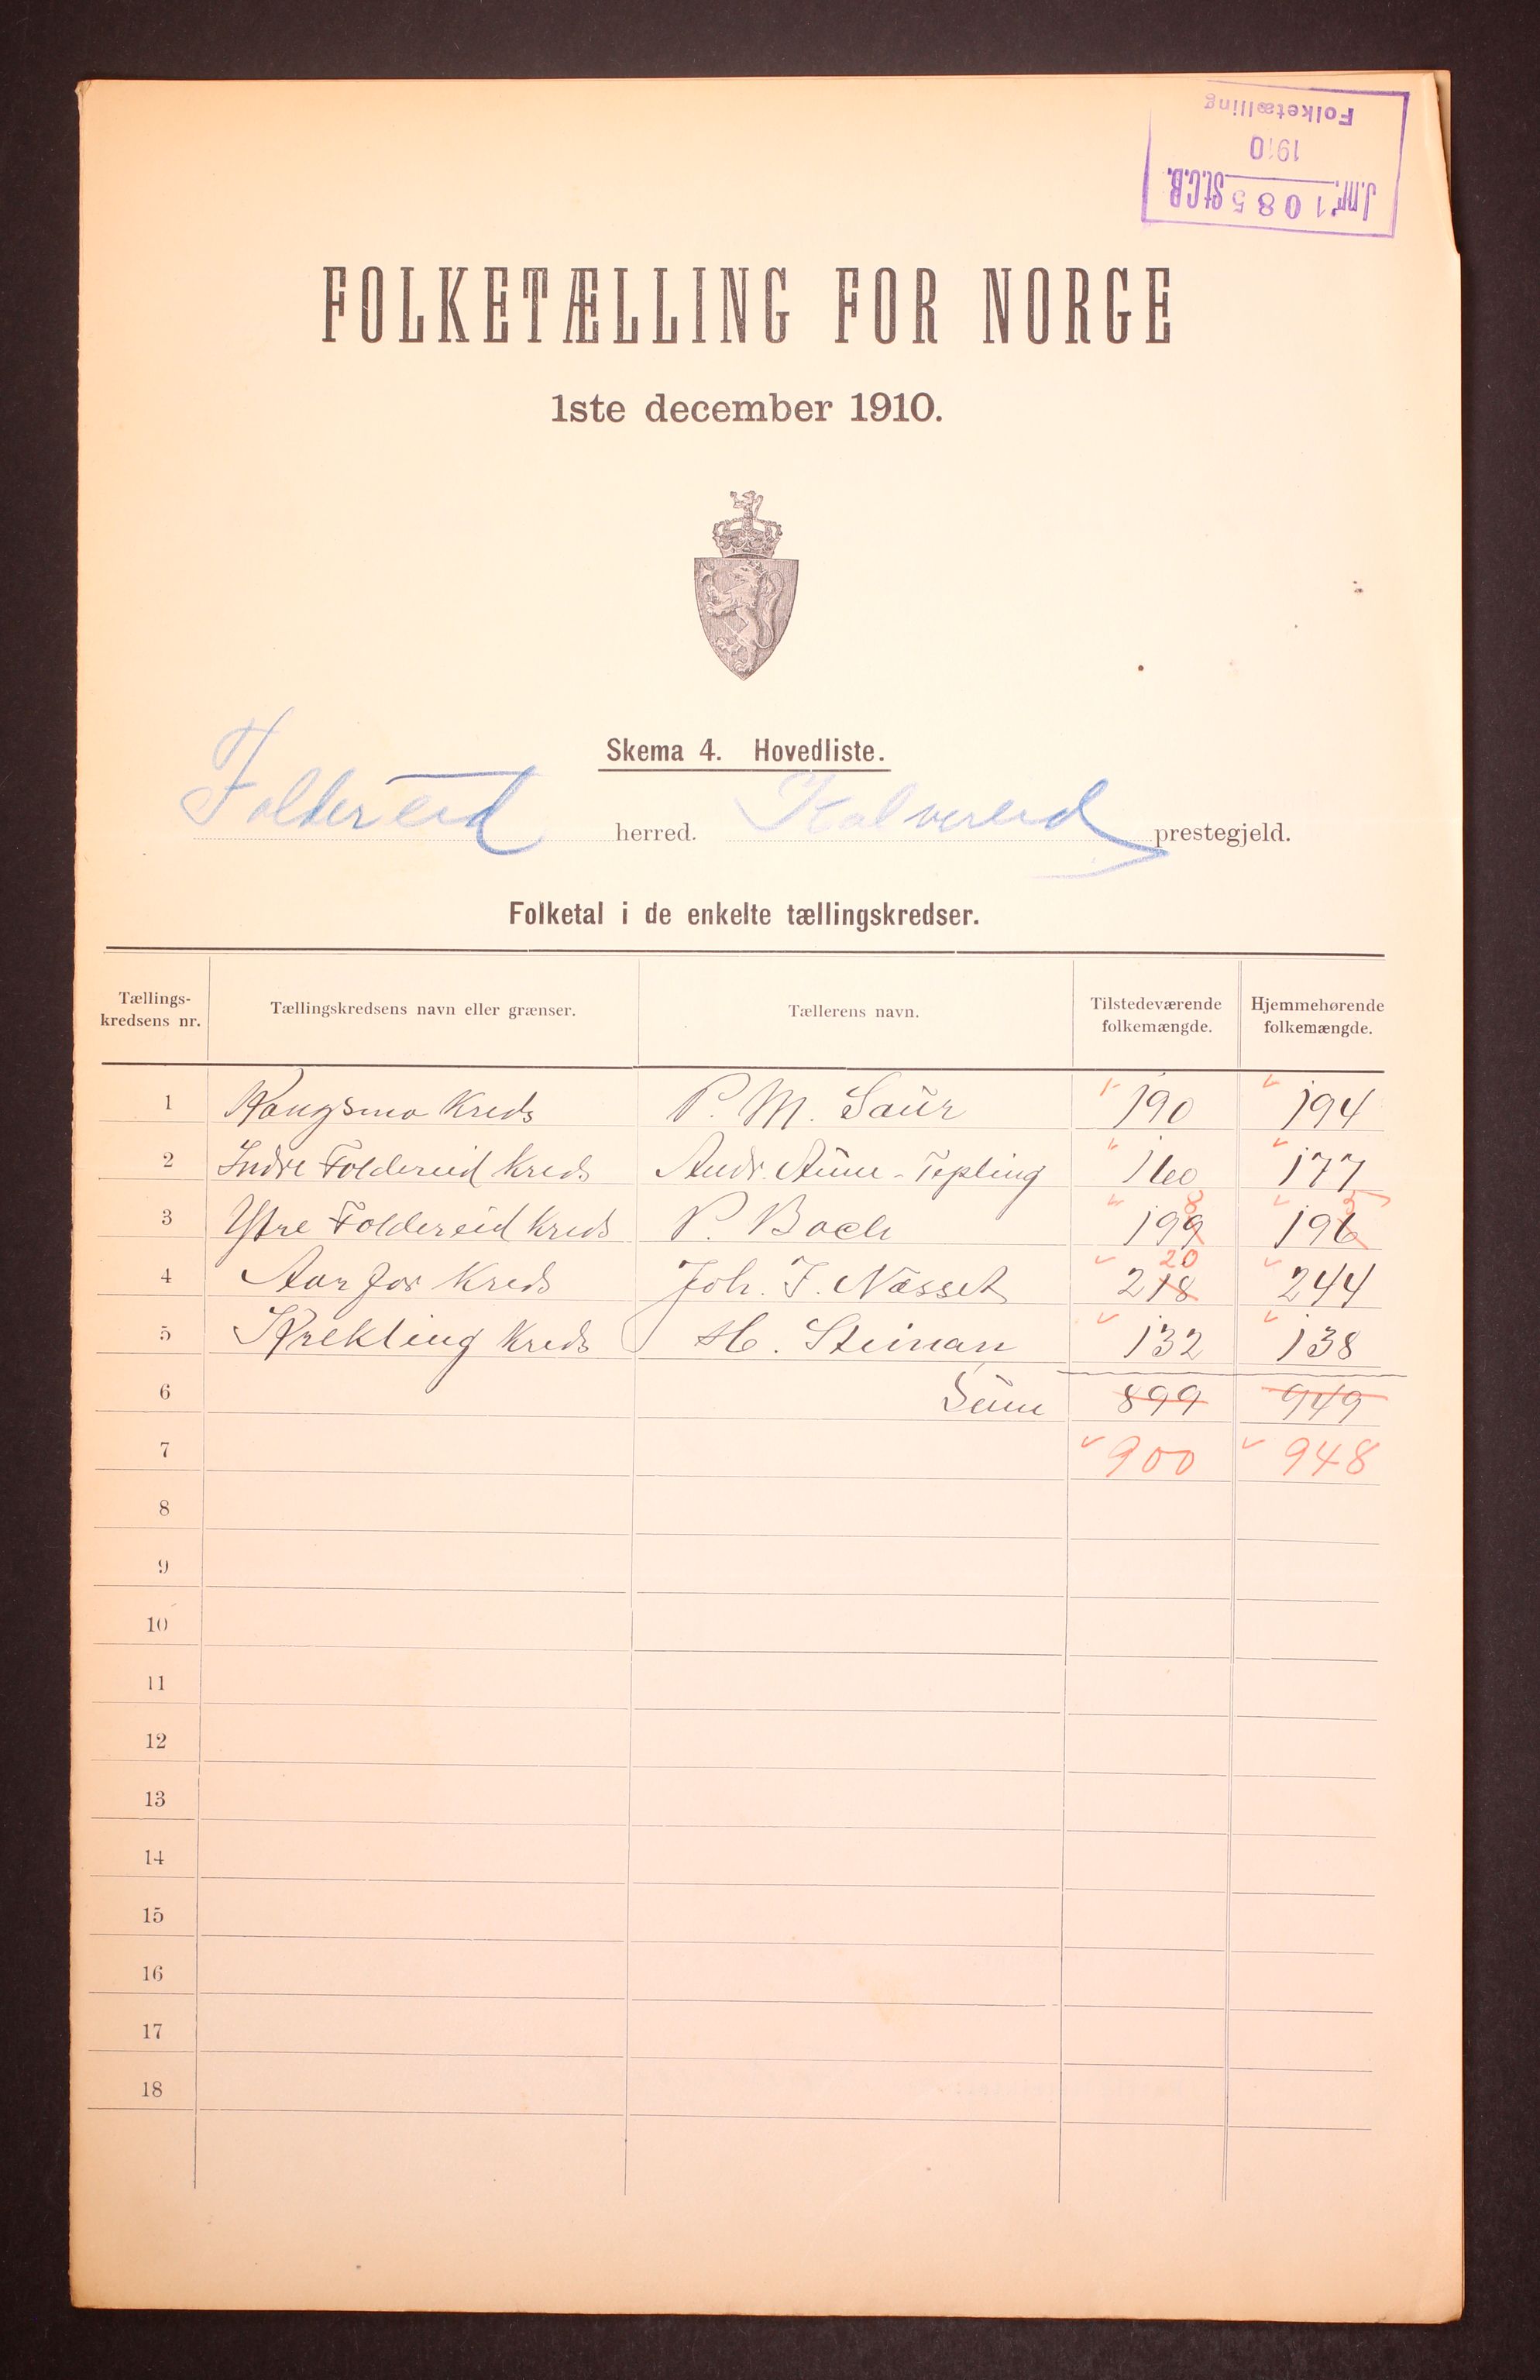 J.nr. 1085 St.C.B.
1910
Folketælling
FOLKETÆLLING FOR NORGE
1ste december 1910.
Skema 4. Hovedliste.
Foldereid herred. Kolvereid prestegjeld.
Folketal i de enkelte tællingskredser.
Tællings-kredsens nr. Tællingskredsens navn eller grænser. Tællerens navn. Tilstedeværende folkemængde. Hjemmehørende folkemængde.
1 Kongsmo Kreds P. M. Saur 190 194
2 Indre Foldereid Kreds Andr. Aune - Tepling 160 177
3 Ytre Foldereid Kreds P. Bach 199 8 196 5
4 Aarfor Kreds Joh. J. Næsset 218 20 244
5 Krekling Kreds H. Steinan 132 138
6 Sum 899 949
7 900 948
8
9
10
11
12
13
14
15
16
17
18